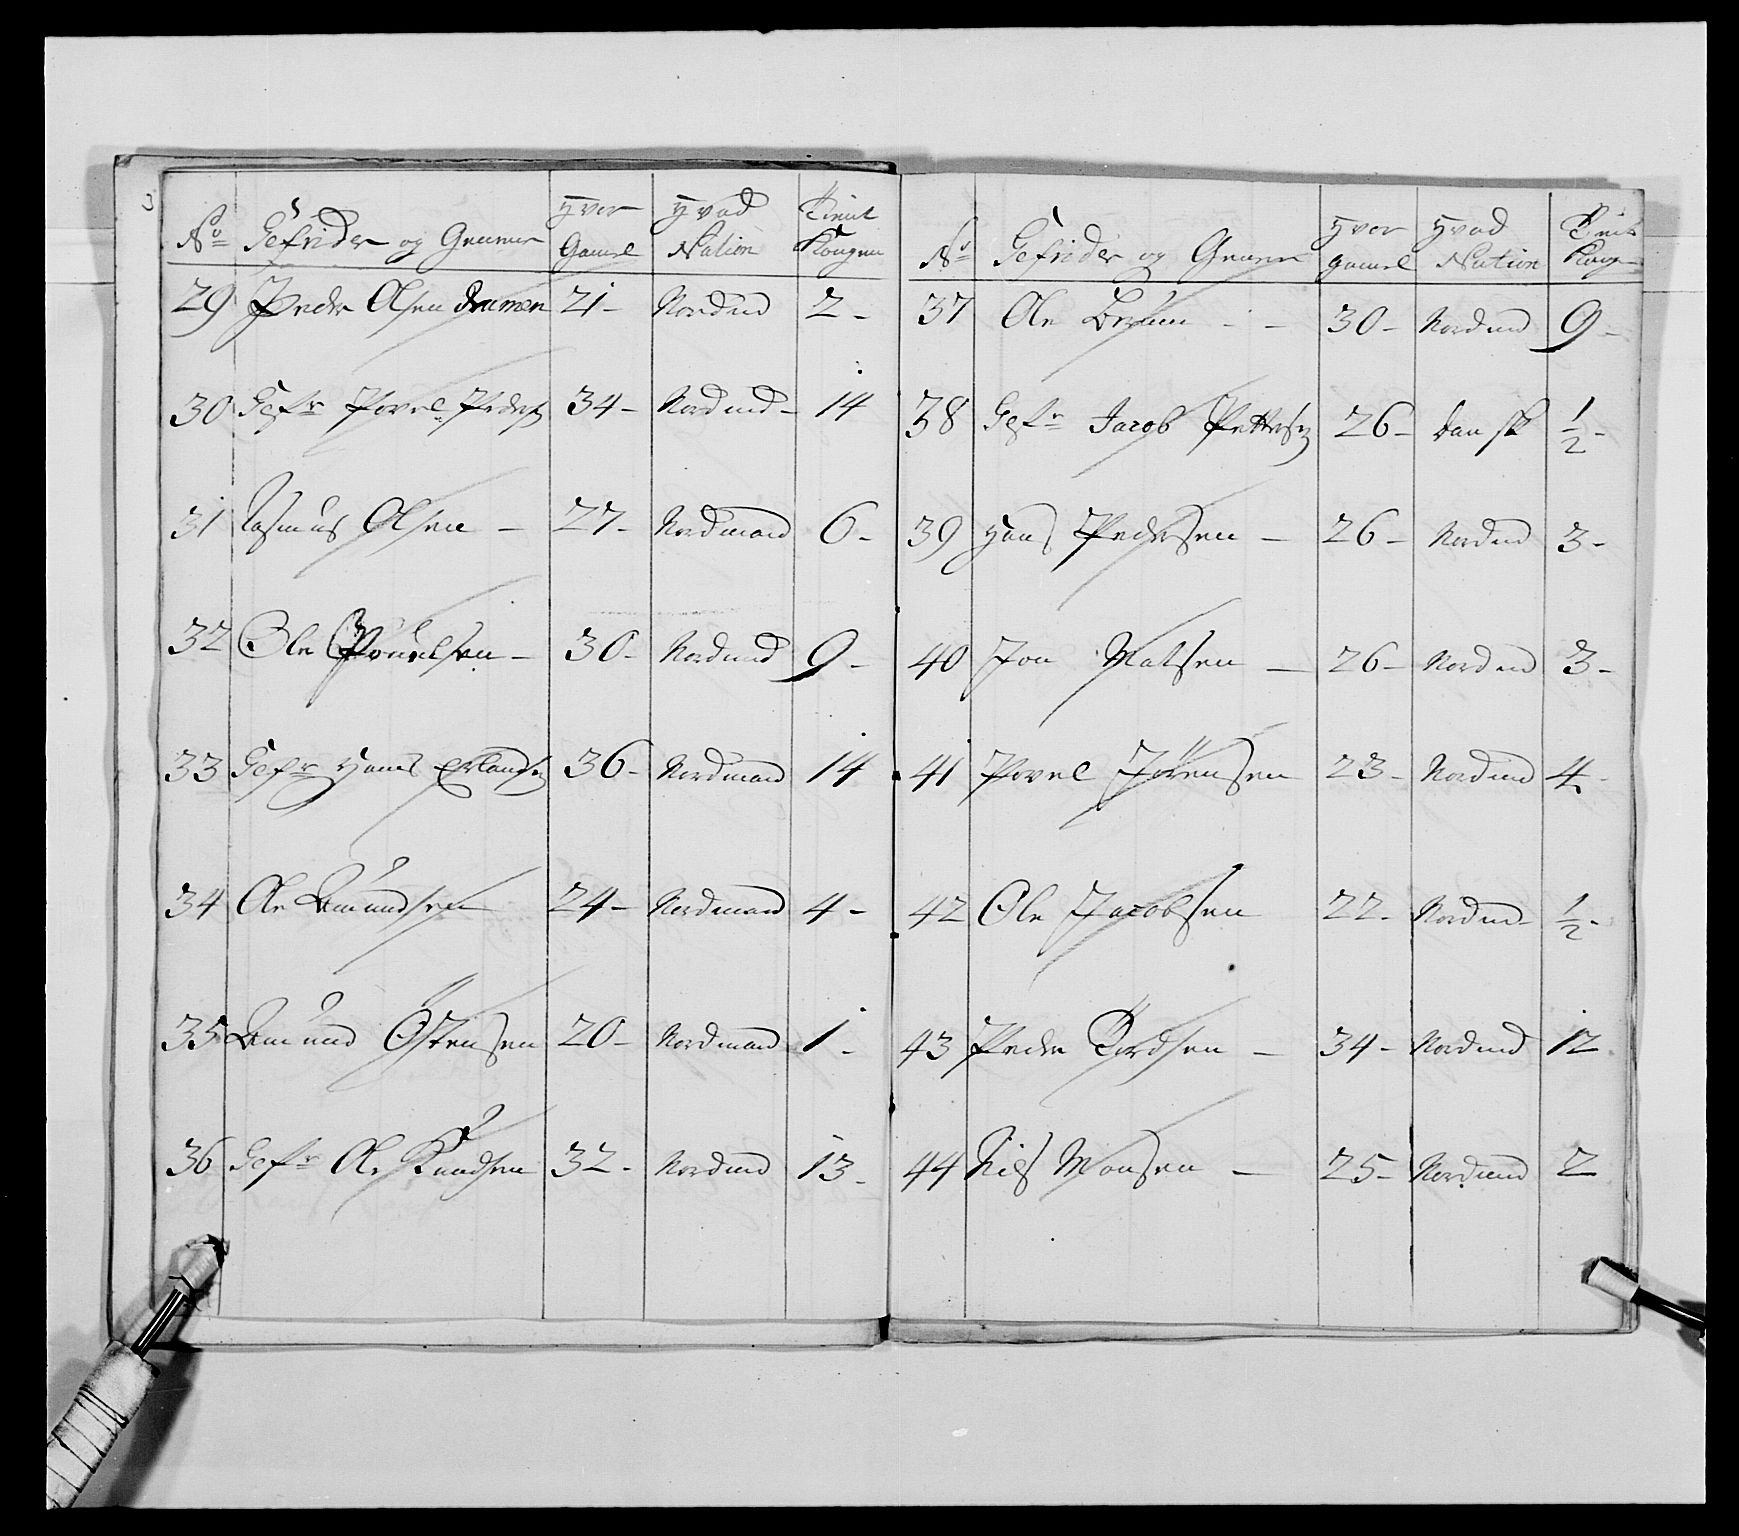 3
No Gefrider og Gemener Hvor Gamel Hvad Nation Tient Kongen
29 Peder Olsen Dramen 21- Nordmd 2-
30 Gefr Povel Peders 34- Nordmd- 14
31 Rasmus Olsen - 27- Nordmand 6-
32 Ole Pouelsen - 30- Nordmd 9-
33 Gefr Hans Erlands 36- Nordmand 14
34 Ole Amundsen 24- Nordmand 4-
35 Amund Østensen 20- Nordmand 1-
36 Gefr Ole Knudsen 32- Nordmd 13-
No Gefrider og Gemen Hvor gamel Hvad Nation Tient Kong
37 Ole - - 30- Nordmd 9-
38 Gefr Jacob Petters 26- Dansk 1/2-
39 Hans Pedersen - 26- Nordmd 3-
40 Jon Matsen - 26- Nordmd 3-
41 Povel Jörensen 23- Nordmd 4-
42 Ole Jacobsen 22- Nordmd- 1/2-
43 Peder Tordsen - 34- Nordmd 12
44 Niels Monsen - 25- Nordmd 2